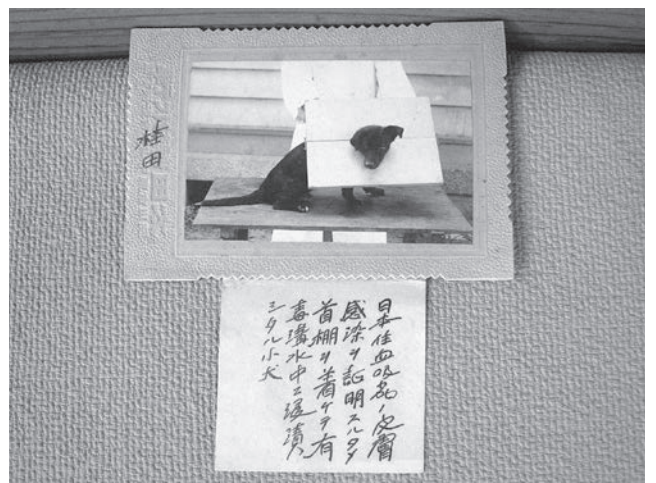 桂田
日本住血吸虫ノ皮膚
感染ヲ証明スルタメ
首棚ヲ着ケテ有
毒溝水中ニ浸漬
シタル小犬